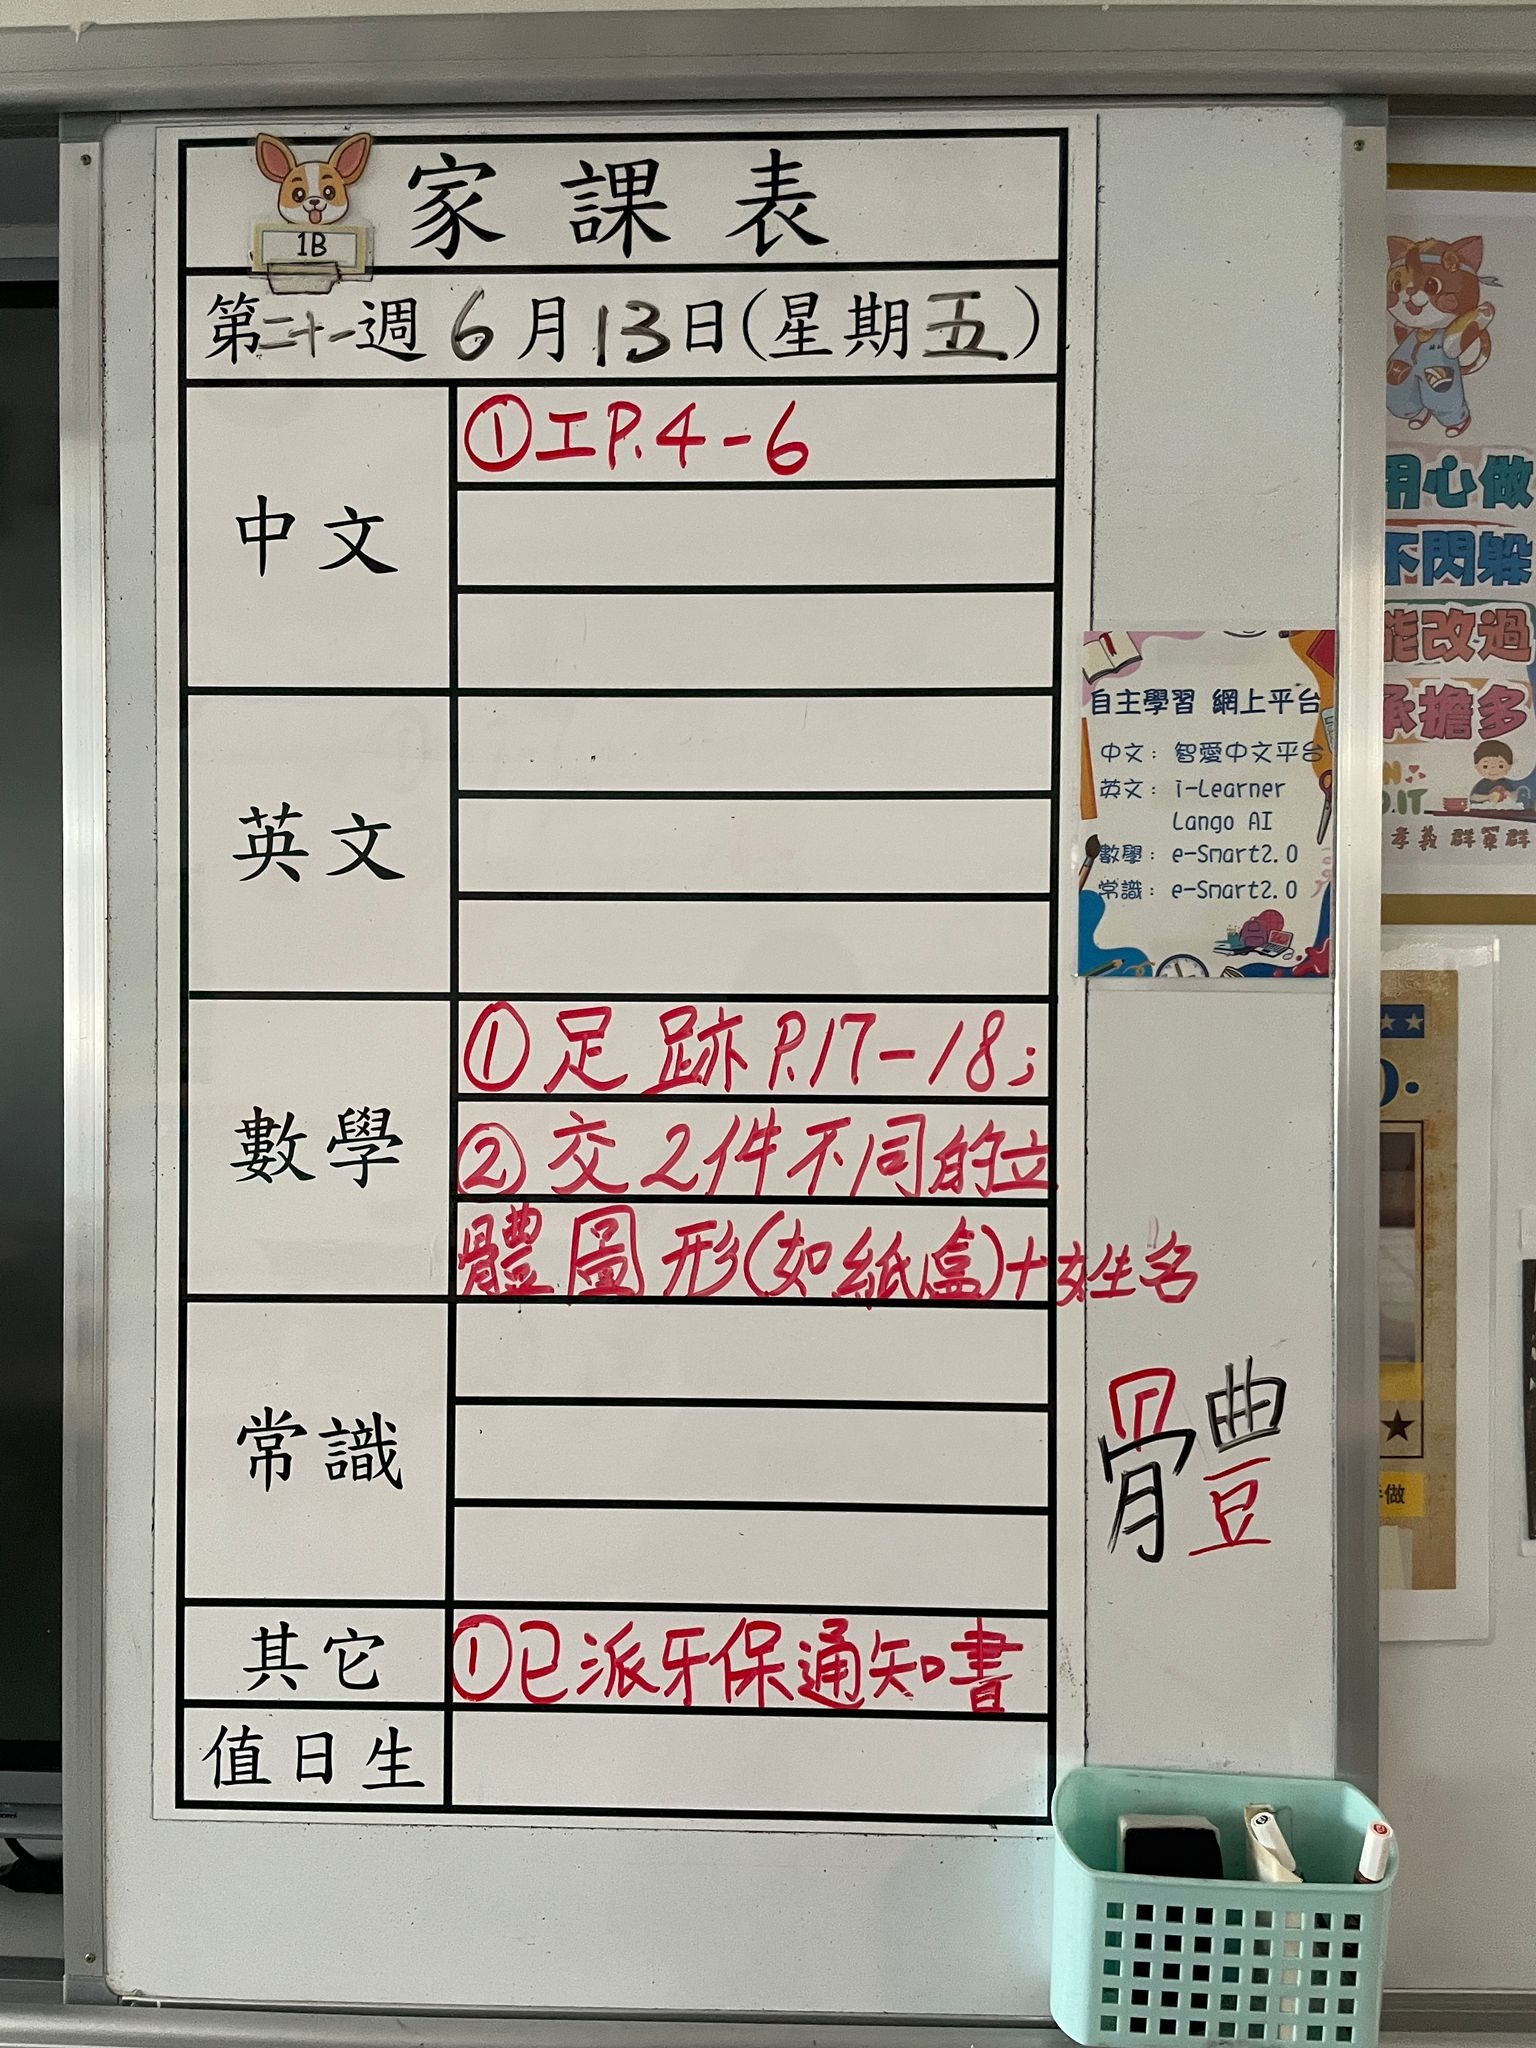 1B
家課表
第二十一週 6月13日(星期五)
中文
①工P.4-6
英文
數學
①足跡P.17-18;
②交2件不同的立
體圖形(如紙盒)+姓名
常識
其它
①已派牙保通知書
值日生
體
自主學習 網上平台
中文： 智愛中文平台
英文： i-Learner
Lango AI
數學： e-Smart2.0
常識： e-Smart2.0
用心做
不閃躲
能改過
承擔多